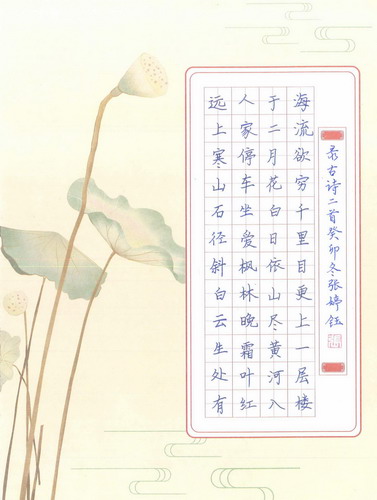 远上寒山石径斜白云生处有
人家停车坐爱枫林晚霜叶红
于二月花白日依山尽黄河入
海流欲穷千里目更上一层楼
录古诗二首癸卯冬张婷钰